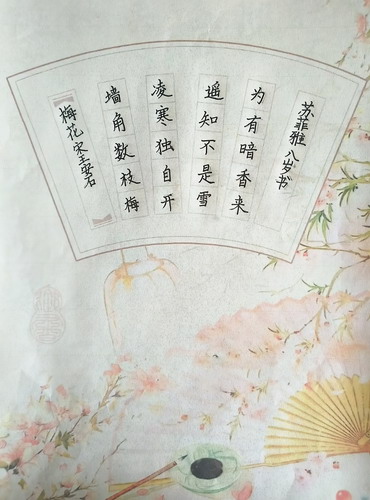 梅花 宋 王安石
墙角数枝梅
凌寒独自开
遥知不是雪
为有暗香来
苏菲雅 八岁书